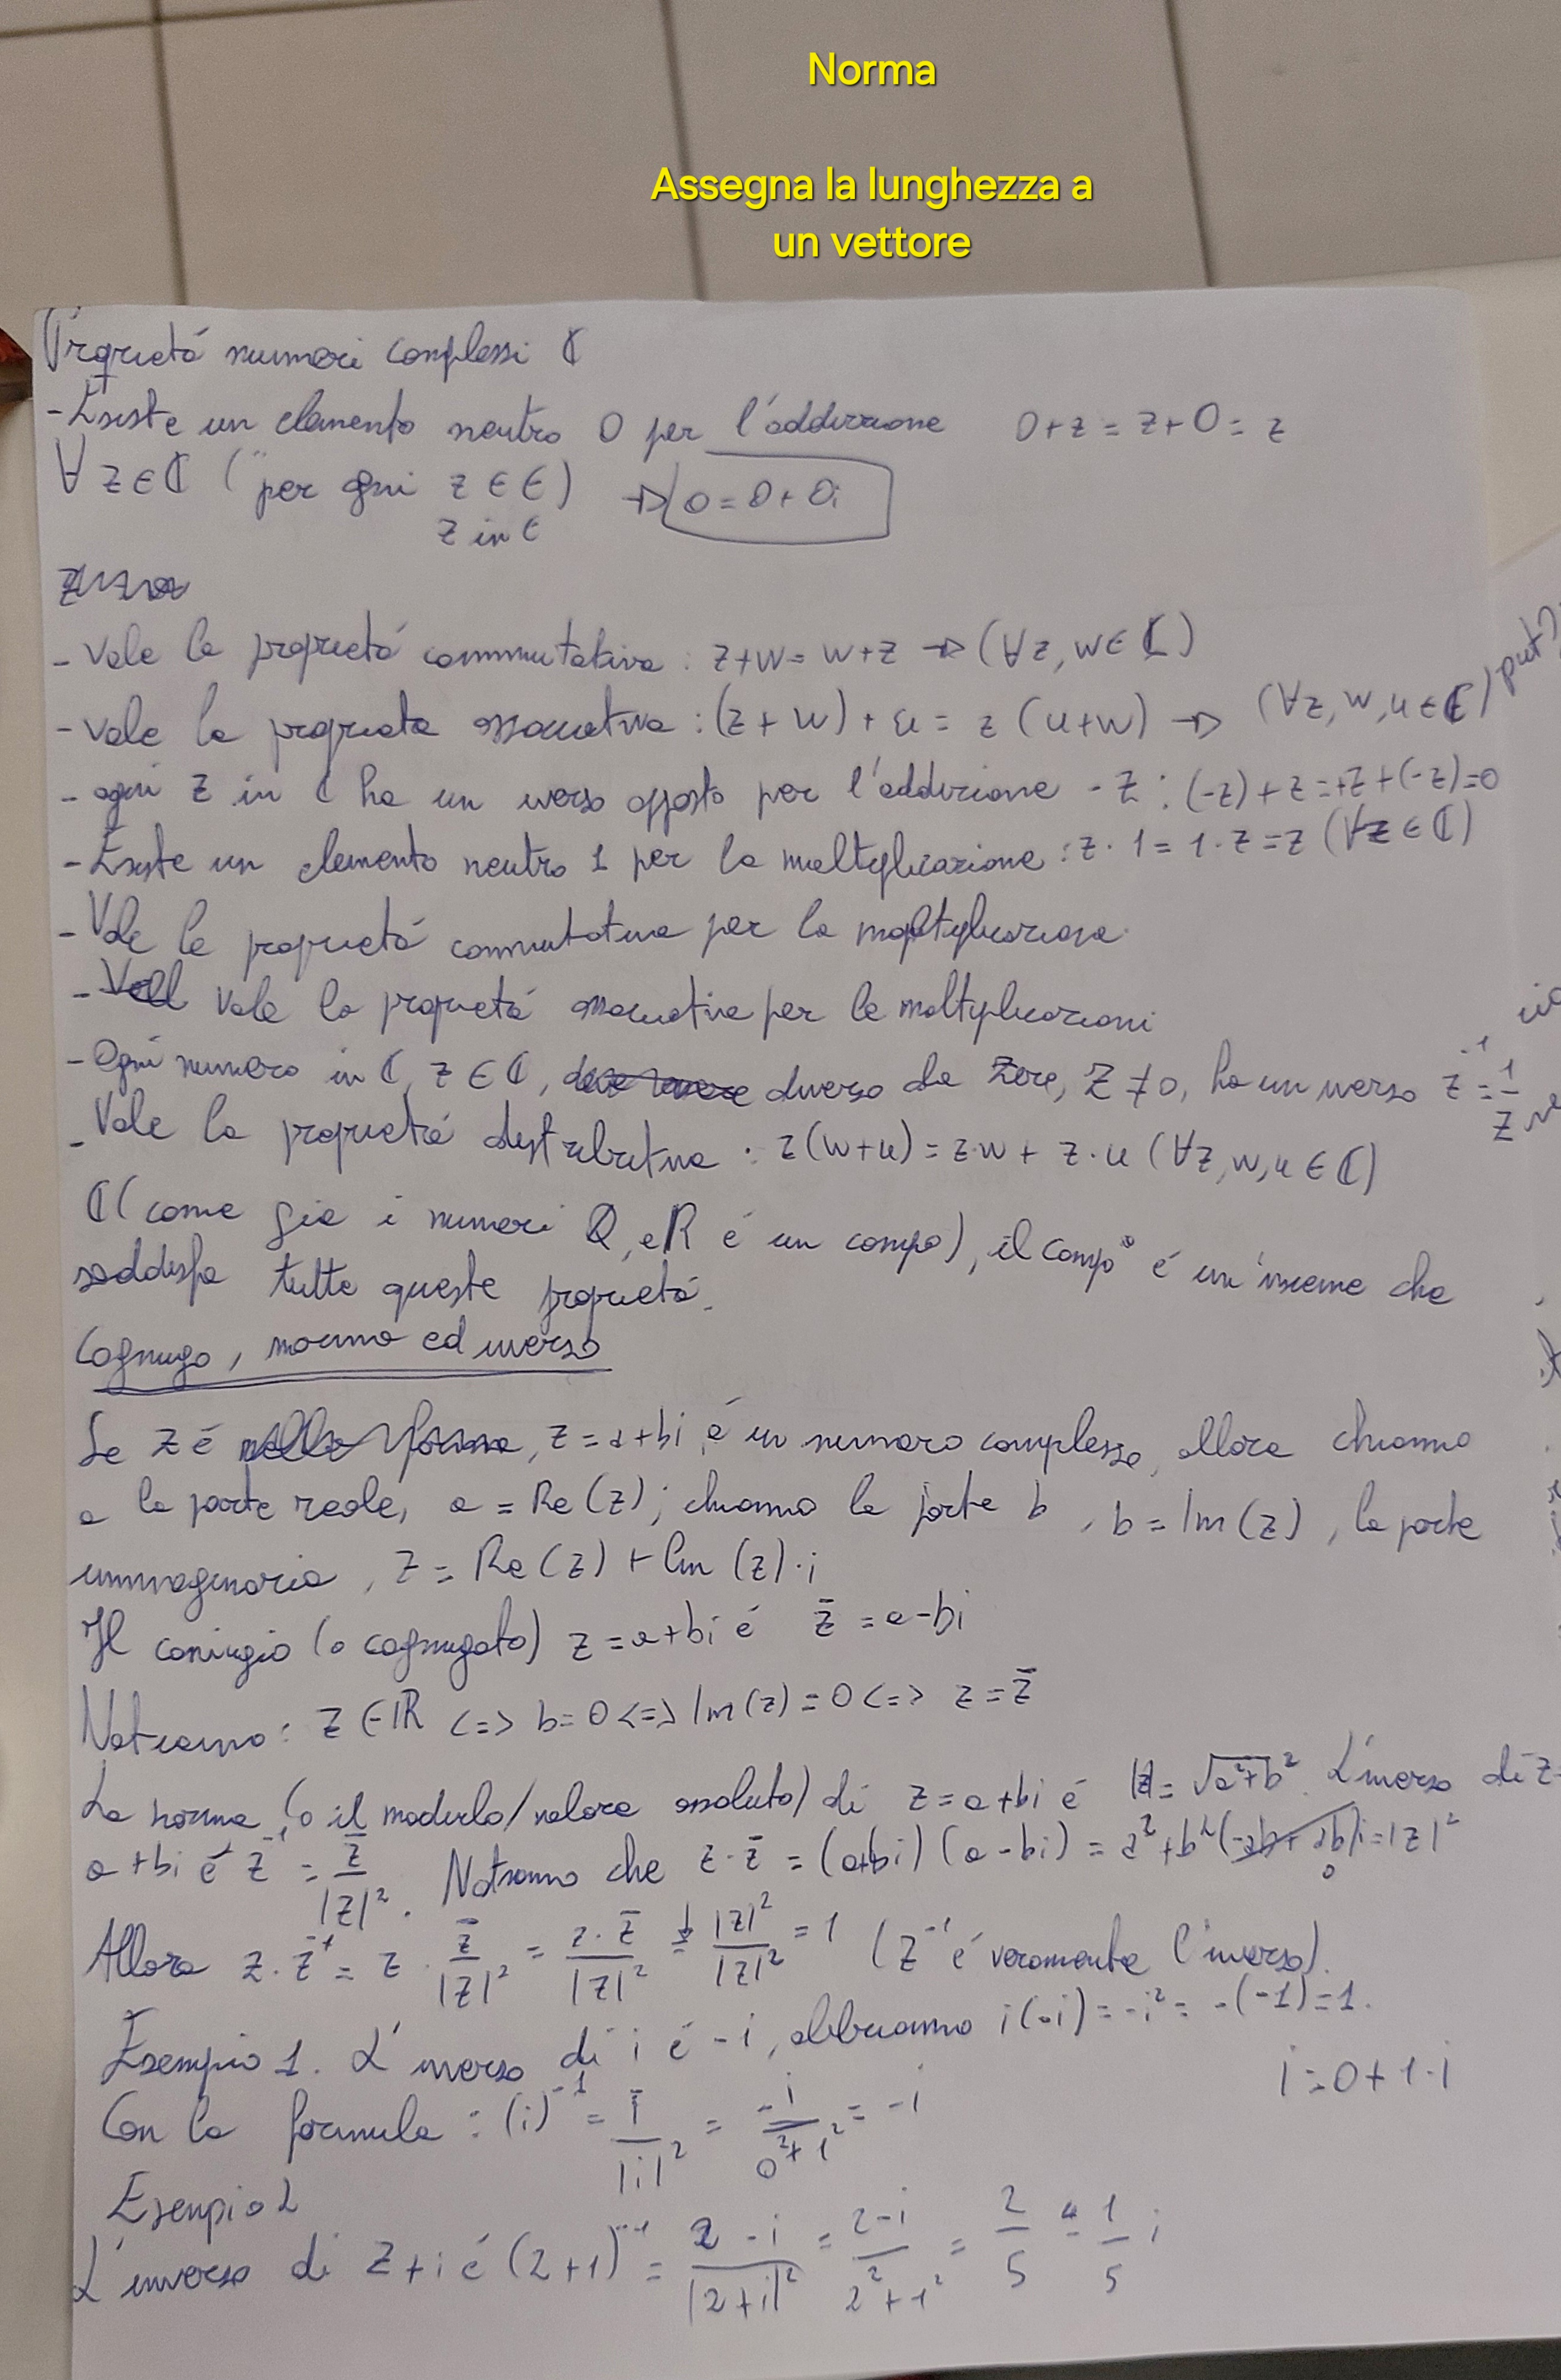 Norma
Assegna la lunghezza a
un vettore
Proprietá numeri complessi ℂ
-Esiste un elemento neutro 0 per l'addizione 0+z = z+0 = z
∀ z∈ℂ ("per ogni z ∈ ℂ) → 0=0+0i
z in ℂ
- Vale la proprietá commutativa : z+w= w+z → (∀z, w∈ℂ)
- Vale la proprieta associativa : (z+w)+u = z (u+w) → (∀z,w,u∈ℂ)
- ogni z in ℂ ha un inverso opposto per l'addizione -z : (-z)+z=+z+(-z)=0
-Esiste un elemento neutro 1 per la moltiplicazione : z·1=1·z=z (∀z∈ℂ)
- Vale la proprietá commutativa per la moltiplicazione
- Vale la proprietá associativa per le moltiplicazioni
- Ogni numero in ℂ, z∈ℂ, diverso da zero, z≠0, ha un inverso z⁻¹=1/z
- Vale la proprietá distributiva : z(w+u)=z·w+z·u (∀z,w,u∈ℂ)
ℂ(come gia i numeri ℚ, e ℝ é un campo), il campo é un'insieme che
soddisfa tutte queste proprietá.
Cognugo, norma ed inverso
Se z é, z=a+bi, é un numero complesso, allora chiamo
a la parte reale, a = Re(z); chiamo la parte b, b = Im(z), la parte
immaginaria, z = Re(z) + Im(z)·i
Il coniugio (o cognugato) z=a+bi é z̄ =a-bi
Notiamo: z∈ℝ <=> b=0<=> Im(z)=0<=> z=z̄
La norma (o il modulo/valore assoluto) di z=a+bi é |z|= √a²+b² L'inverso di z=
a+bi é z⁻¹ = z̄/|z|². Notiamo che z·z̄ = (a+bi)(a-bi) = a²+b²(-ab+ab)i=|z|²
0
Allora z·z⁻¹= z·z̄/|z|² = z·z̄/|z|² = |z|²/|z|² = 1 (z⁻¹ é veramente l'inverso).
Esempio 1. L'inverso di i é -i, abbiamo i(-i)=-i²= -(-1)=1.
i=0+1·i
Con la formula : (i)⁻¹ = ī/|i|² = -i/0²+1² = -i
Esempio 2
L'inverso di 2+i é (2+1)⁻¹ = 2-i/|2+i|² = 2-i/2²+1² = 2/5 - 1/5 i